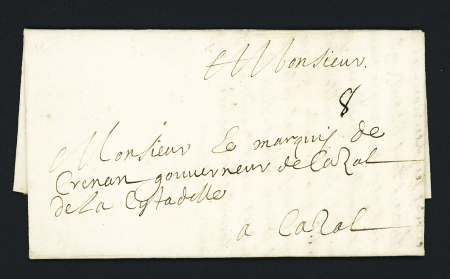 A Monsieur.
8
A Monsieur Le marquis de
Crenan gouuerneur de Cazal
de la Cytadelle
a Cazal